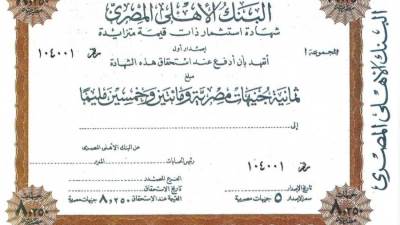 البنك الأهلى المصرى
شهادة استثمار ذات قيمة متزايدة
إصدار أول
المجموعة أ
١٠٤٠٠١
١٠٤٠٠١
أتعهد بأن أدفع عند استحقاق هذه الشهادة
مبلغ
ثمانية جنيهات مصرية ومائتين وخمسين مليمًا
إلى
عن البنك الأهلى المصرى
رئيس الحسابات
المدير
١٠٤٠٠١
الفرع المصدر
تاريخ الإصدار
تاريخ الاستحقاق
سعر الإصدار ٥ جنيهات مصرية
القيمة عند الاستحقاق ٨٫٢٥٠ جنيهات مصرية
٨٫٢٥٠
٨٫٢٥٠
البنك الأهلى المصرى